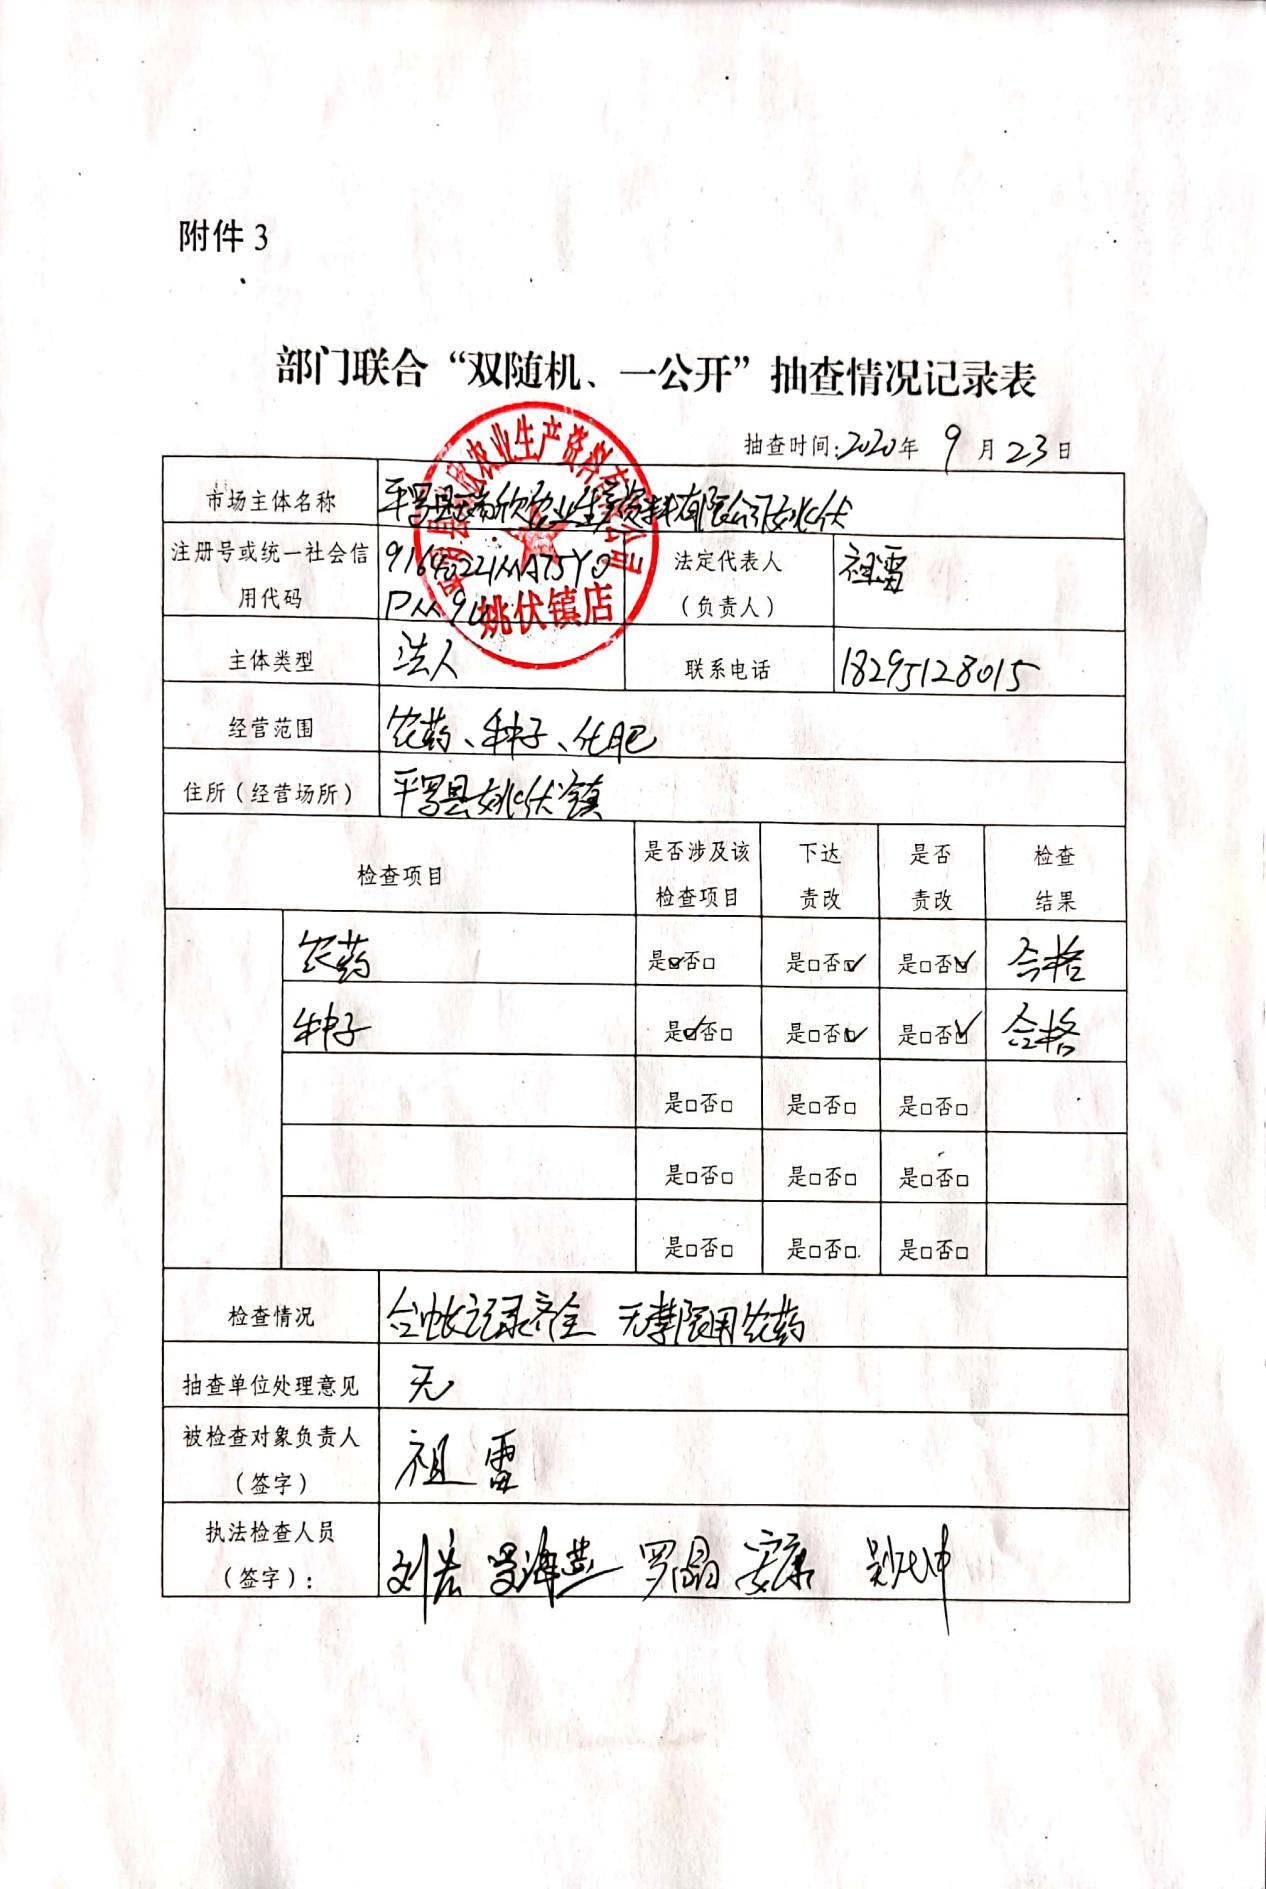 附件3
部门联合“双随机、一公开”抽查情况记录表
抽查时间:2020年 9月23日
市场主体名称 平罗县瑞欣农业生产资料有限公司姚伏
注册号或统一社会信用代码 91640221MA75Y0 法定代表人(负责人) 祖雷
主体类型 法人 联系电话 18295128015
经营范围 农药、种子、化肥
住所(经营场所) 平罗县姚伏镇
检查项目 是否涉及该检查项目 下达责改 是否责改 检查结果
农药 是☑否□ 是□否☑ 是□否☑ 合格
种子 是☑否□ 是□否☑ 是□否☑ 合格
是□否□ 是□否□ 是□否□
是□否□ 是□否□ 是□否□
是□否□ 是□否□. 是□否□
检查情况 台帐记录齐全 无禁限用农药
抽查单位处理意见 无
被检查对象负责人(签字) 祖雷
执法检查人员(签字): 罗晶 安康
欣农业生产资料有限公司
姚伏镇店